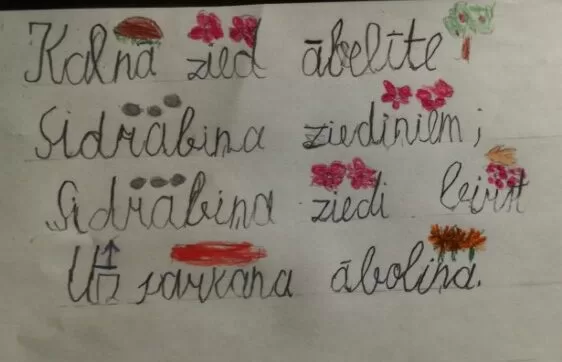 Kalnā zied ābelīte
Sidrābiņa ziediņiem;
Sidrābiņa ziedi birst
Uz sarkana āboliņa.